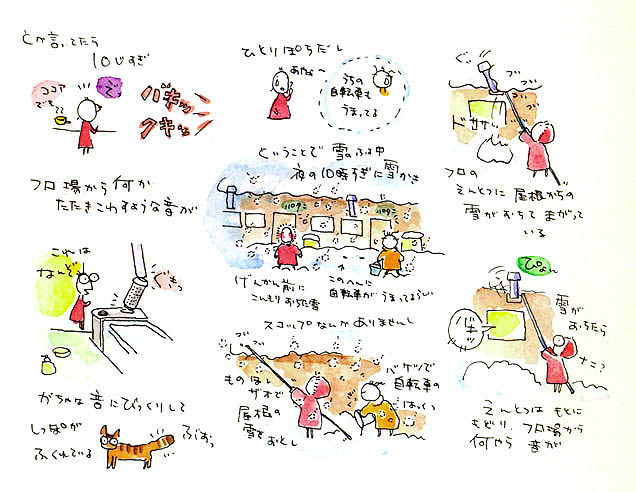 と言ってたら
10じすぎ
ココア
でも??
で
バキッ
クキッ
フロ場から何か
たたきこわすような音が
これは
なんぞ
がちゃな音にびっくりして
しっぽが
ふくれている
ひとりぼっちだし
あれな
うちの
自転車も
うまってる
ということで 雪のふる中
夜の10時すぎに雪かき
1109号
1107号
げんかん前に
こんもりおちた雪
このへんに
自転車がうまってるらしい
スコップなんかありませんし
ものほし
ザオで
屋根の
雪をおとし
バケツで
自転車の
はっくつ
ぐ
ドサササ
フロの
えんとつに屋根からの
雪がおちて まがって
いる
ぴょん
雪が
おちたら
なこ?
バキッ
えんとつは もとに
もどり、フロ場から
何やら 音が